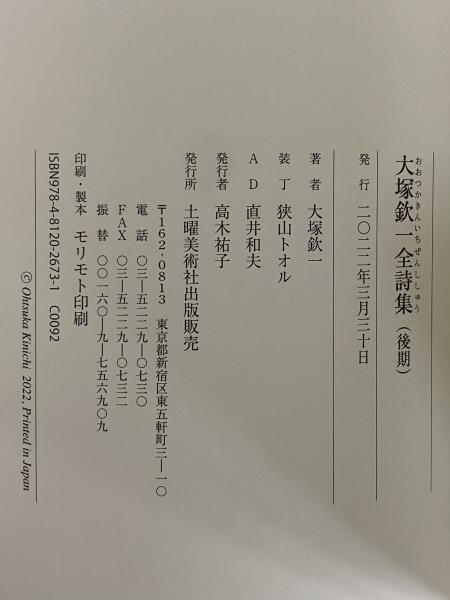 おおつかきんいちぜんししゅう
大塚欽一全詩集(後期)
発行 二〇二二年三月三十日
著者 大塚欽一
装丁 狭山トオル
AD 直井和夫
発行者 高木祐子
発行所 土曜美術社出版販売
〒162-0813 東京都新宿区東五軒町三―一〇
電話 〇三―五二二九―〇七三〇
FAX 〇三―五二二九―〇七三二
振替 〇〇一六〇―九―七五六九〇九
印刷・製本 モリモト印刷
ISBN978-4-8120-2673-1 C0092
© Ohtsuka Kinichi 2022, Printed in Japan